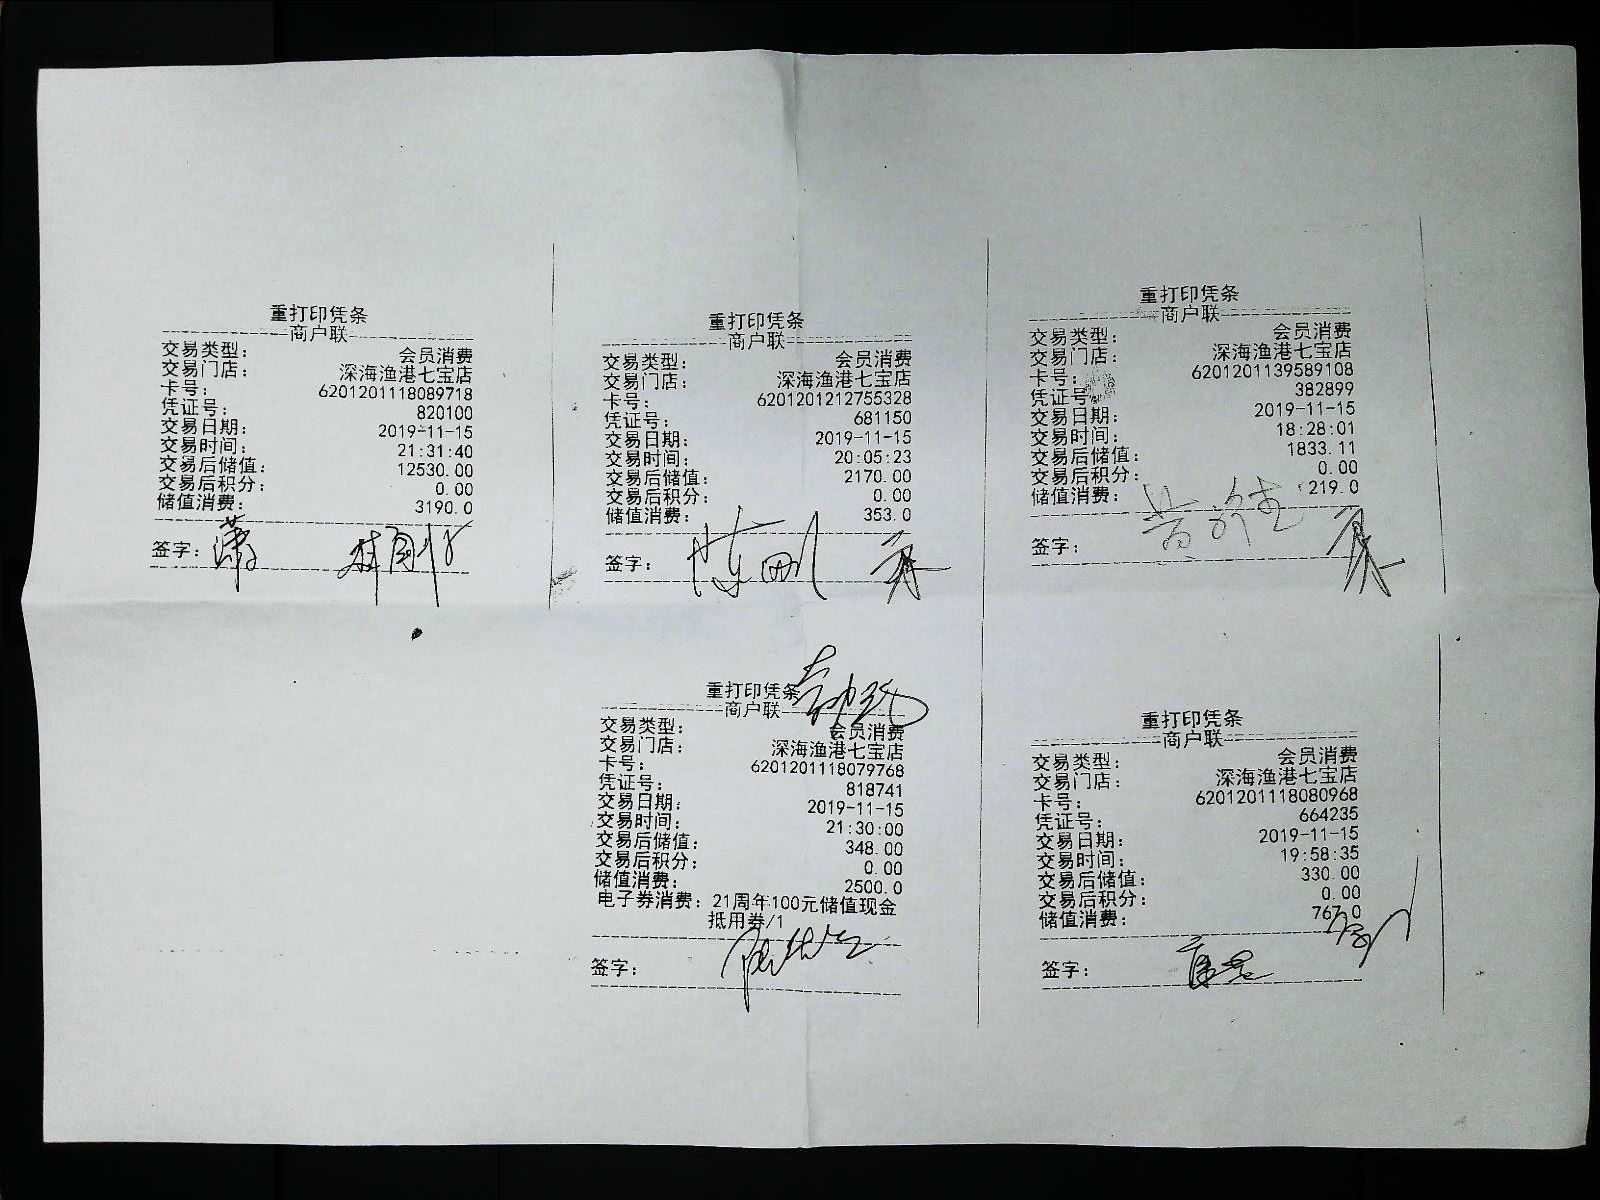 重打印凭条
商户联
交易类型: 会员消费
交易门店: 深海渔港七宝店
卡号: 6201201118089718
凭证号: 820100
交易日期: 2019-11-15
交易时间: 21:31:40
交易后储值: 12530.00
交易后积分: 0.00
储值消费: 3190.0
签字:
重打印凭条
商户联
交易类型: 会员消费
交易门店: 深海渔港七宝店
卡号: 6201201212755328
凭证号: 681150
交易日期: 2019-11-15
交易时间: 20:05:23
交易后储值: 2170.00
交易后积分: 0.00
储值消费: 353.0
签字:
重打印凭条
商户联
交易类型: 会员消费
交易门店: 深海渔港七宝店
卡号: 6201201139589108
凭证号 382899
交易日期: 2019-11-15
交易时间: 18:28:01
交易后储值: 1833.11
交易后积分: 0.00
储值消费: 219.0
签字:
重打印凭条
商户联
交易类型: 会员消费
交易门店: 深海渔港七宝店
卡号: 6201201118079768
凭证号: 818741
交易日期: 2019-11-15
交易时间: 21:30:00
交易后储值: 348.00
交易后积分: 0.00
储值消费: 2500.0
电子券消费: 21周年100元储值现金
抵用券/1
签字:
重打印凭条
商户联
交易类型: 会员消费
交易门店: 深海渔港七宝店
卡号: 6201201118080968
凭证号: 664235
交易日期: 2019-11-15
交易时间: 19:58:35
交易后储值: 330.00
交易后积分: 0.00
储值消费: 767.0
签字: